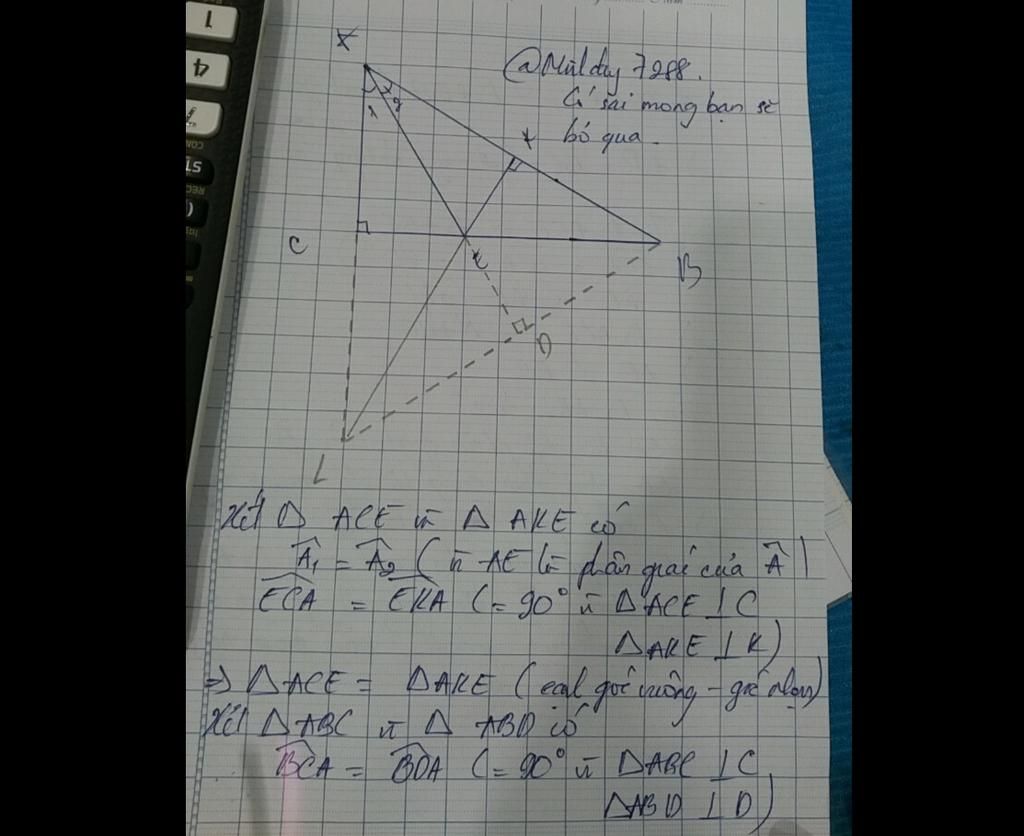 @Nulday 7288.
Có sai mong bạn sẽ
bỏ qua.
1 2
K
C
E
B
D
L
Xét Δ ACE và Δ AKE có
Â1 = Â2 ( vì AE là phân giác của Â )
ECA = EKA ( = 90° vì ΔACE ⊥ C
ΔAKE ⊥ K )
=> ΔACE = ΔAKE ( góc vuông - góc nhọn )
Xét ΔABC và Δ ABD có
BCA = BDA ( = 90° vì ΔABC ⊥ C
ΔABD ⊥ D )